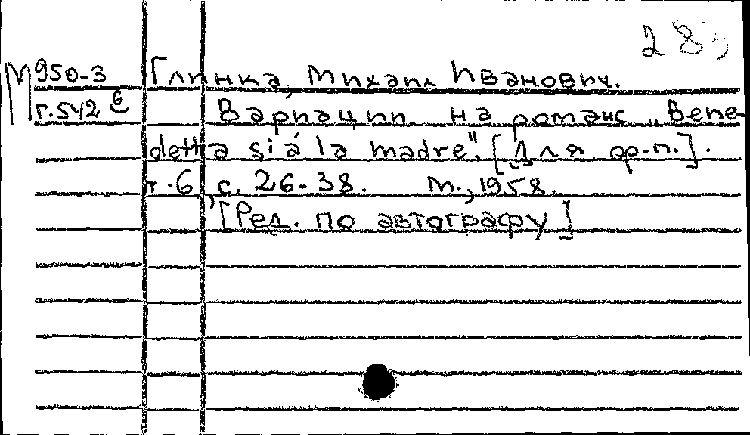 28
М 950-3 Глинка, Михаил Иванович.
г.542 6 Вариации на романс „Bene-
detta sia la madre". [Для ф-п.].
т.6, с. 26-38. М., 1958.
[Ред. по автографу]